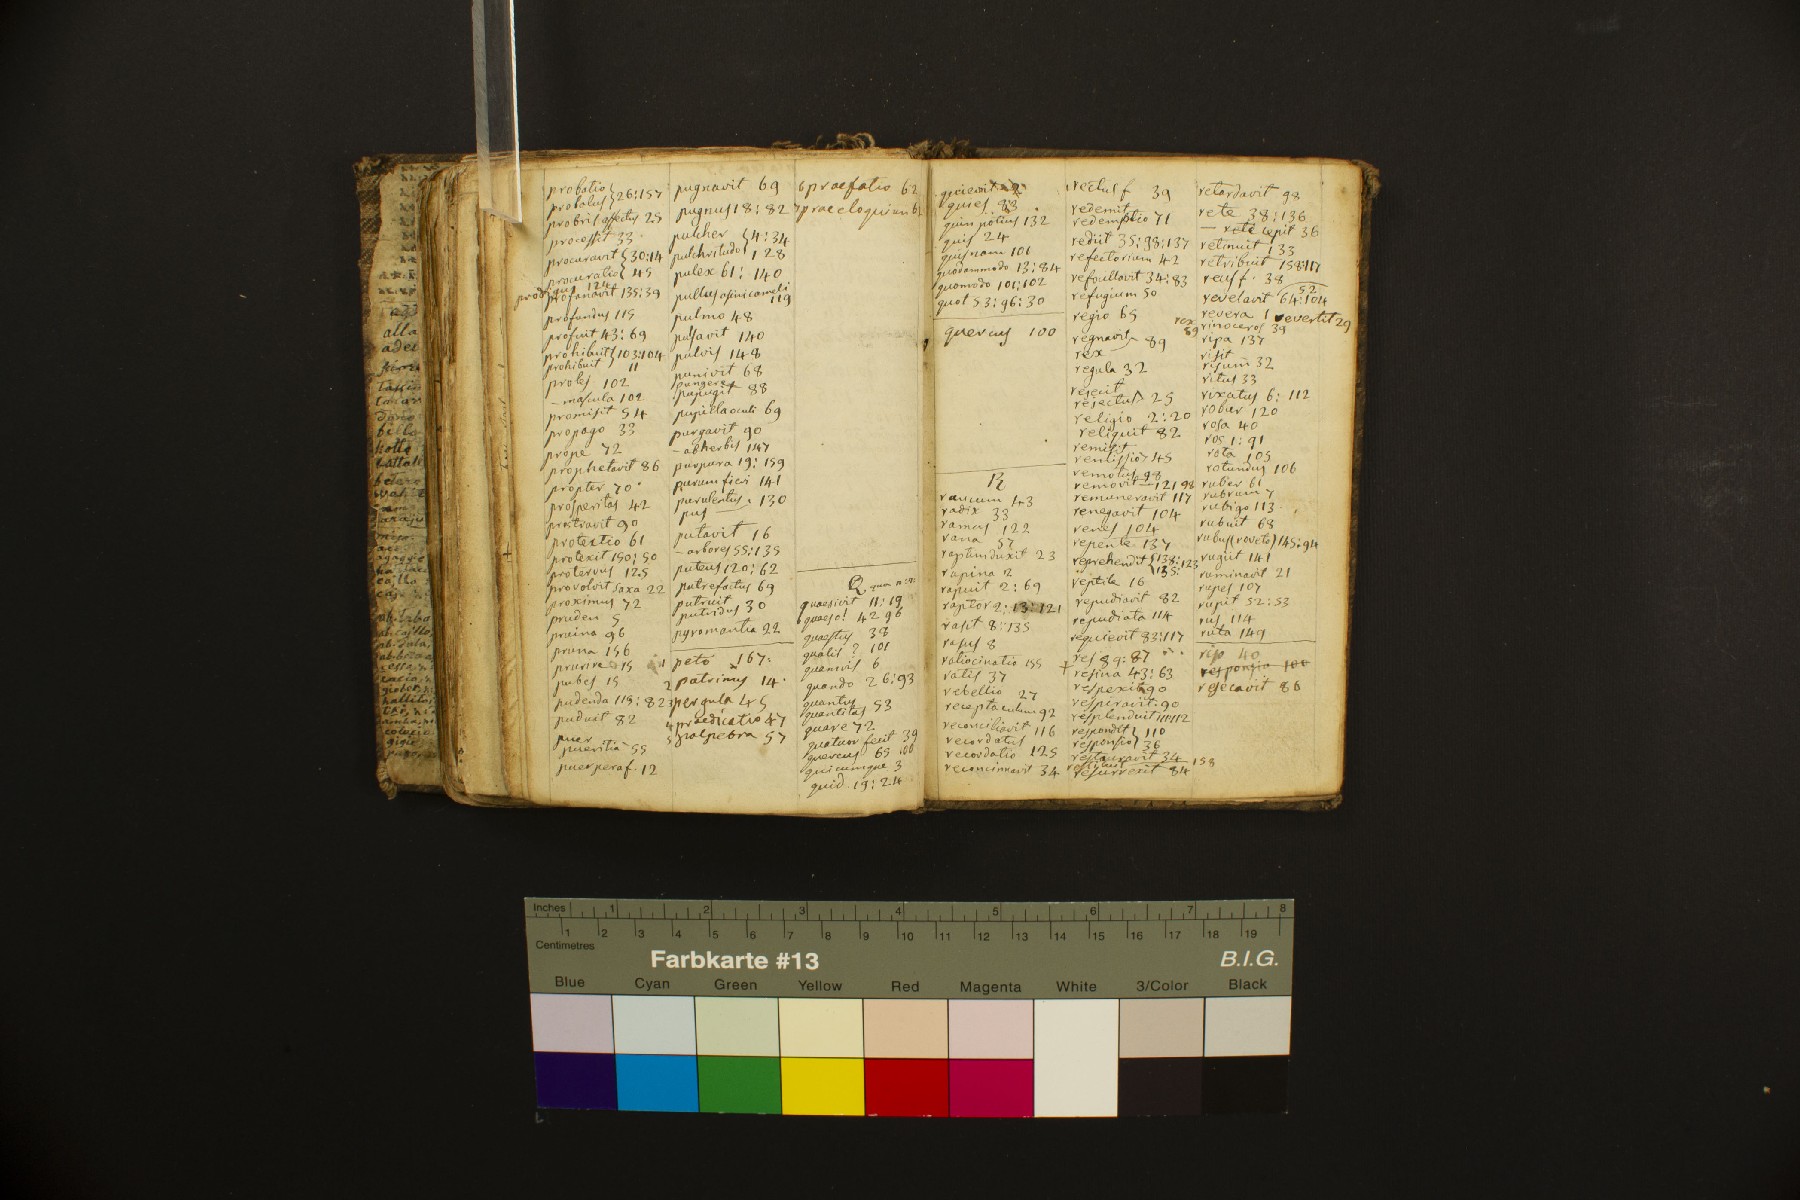 probatio } 26:157
probatus
probris affectus 25
processit 33
procuravit } 30:14
procuratio 45
prodigus 124
profanavit 135:39
profundus 115
profuit 43:69
prohibuit } 103:104
prohibuit 11
proles 102
– mascula 102
promisit 54
propago 33
prope 72
prophetavit 86
propter 70
prosperitas 42
prostravit 90
protectio 61
protexit 150:50
protervus 125
provolvit saxa 22
proximus 72
prudens 5
pruina 96
pruna 156
prurire 15
pubes 15
pudenda 119:82
puduit 82
puer
pueritia 55
puerpera f. 12
pugnavit 69
pugnus 18:82
pulcher } 4:34
pulchritudo 128
pulex 61:140
pullus asini cameli
119
pulmo 48
pulsavit 140
pulvis 148
punivit 68
pungere
pupugit 88
pupilla oculi 69
purgavit 90
– ab herbis 147
purpura 19:159
purum fieri 141
purulentus 130
pus
putavit 16
– arbores 55:135
puteus 120:62
putrefactus 69
putruit
putridus 30
pyromantia 22
1 peto 167:
2 patrinus 14
3 pergula 45
4 praedicatio 47
5 palpebra 57
6 praefatio 62
7 praeeloquium 62
Q
quaesivit 11:19
quaeso! 42 96
quaestus 38
qualis? 101
quamvis 6
quando 26:93
quantus
quantitas 53
quare 72
quatuor fecit 39
quercus 65 100
quicumque 3
quid 19:24
quievit
quies 83
quin potius 132
quis 24
quisnam 101
quodammodo 13:84
quomodo 101:102
quot 53:96:30
quercus 100
R
raucum 43
radix 33
ramus 122
rana 57
raptum duxit 23
rapina 2
rapuit 2:69
raptor 2:13:121
rasit 8:135
rasus 8
ratiocinatio 155
ratis 37
rebellio 27
receptaculum 92
reconciliavit 116
recordatus
recordatio 125
reconcinnavit 34
rectus f 39
redemit
redemptio 71
rediit 35:98:137
refectorium 42
refocillavit 34:83
refugium 50
regio 65
regnavit 89
rex
regula 32
rejecit
rejectus 25
religio 2:20
reliquit 82
remisit
remissio 45
remotus 98
removit 121 98
remuneravit 117
renegavit 104
renes 104
repente 137
reprehendit } 138:123
135:
reptile 16
repudiavit 82
repudiata 114
requievit 83:117
res 89:87
resina 43:63
respexit 90
resperavit 90
resplenduit 111112
respondit } 110
responsio 36
restauravit 34
restituit 158
resurrexit 84
retardavit 98
rete 38:136
– rete cepit 36
retinuit 133
retribuit 158117
reus f. 38
52
revelavit 64:104
revera 1 revertit 29
rex 89 rinoceros 39
ripa 137
risit
risum 32
ritus 33
rixatus 6:112
robur 120
rosa 40
ros 1:91
rota 105
rotundus 106
ruber 61
rubrum 7
rubigo 113
rubuit 68
rubus (roveto) 145:94
rugiit 141
ruminavit 21
rupes 107
rupit 52:53
rus 114
ruta 149
rip 40
responsio 100
resecavit 86
Inches 1 2 3 4 5 6 7 8
1 2 3 4 5 6 7 8 9 10 11 12 13 14 15 16 17 18 19
Centimetres
Farbkarte #13
B.I.G.
Blue Cyan Green Yellow Red Magenta White 3/Color Black